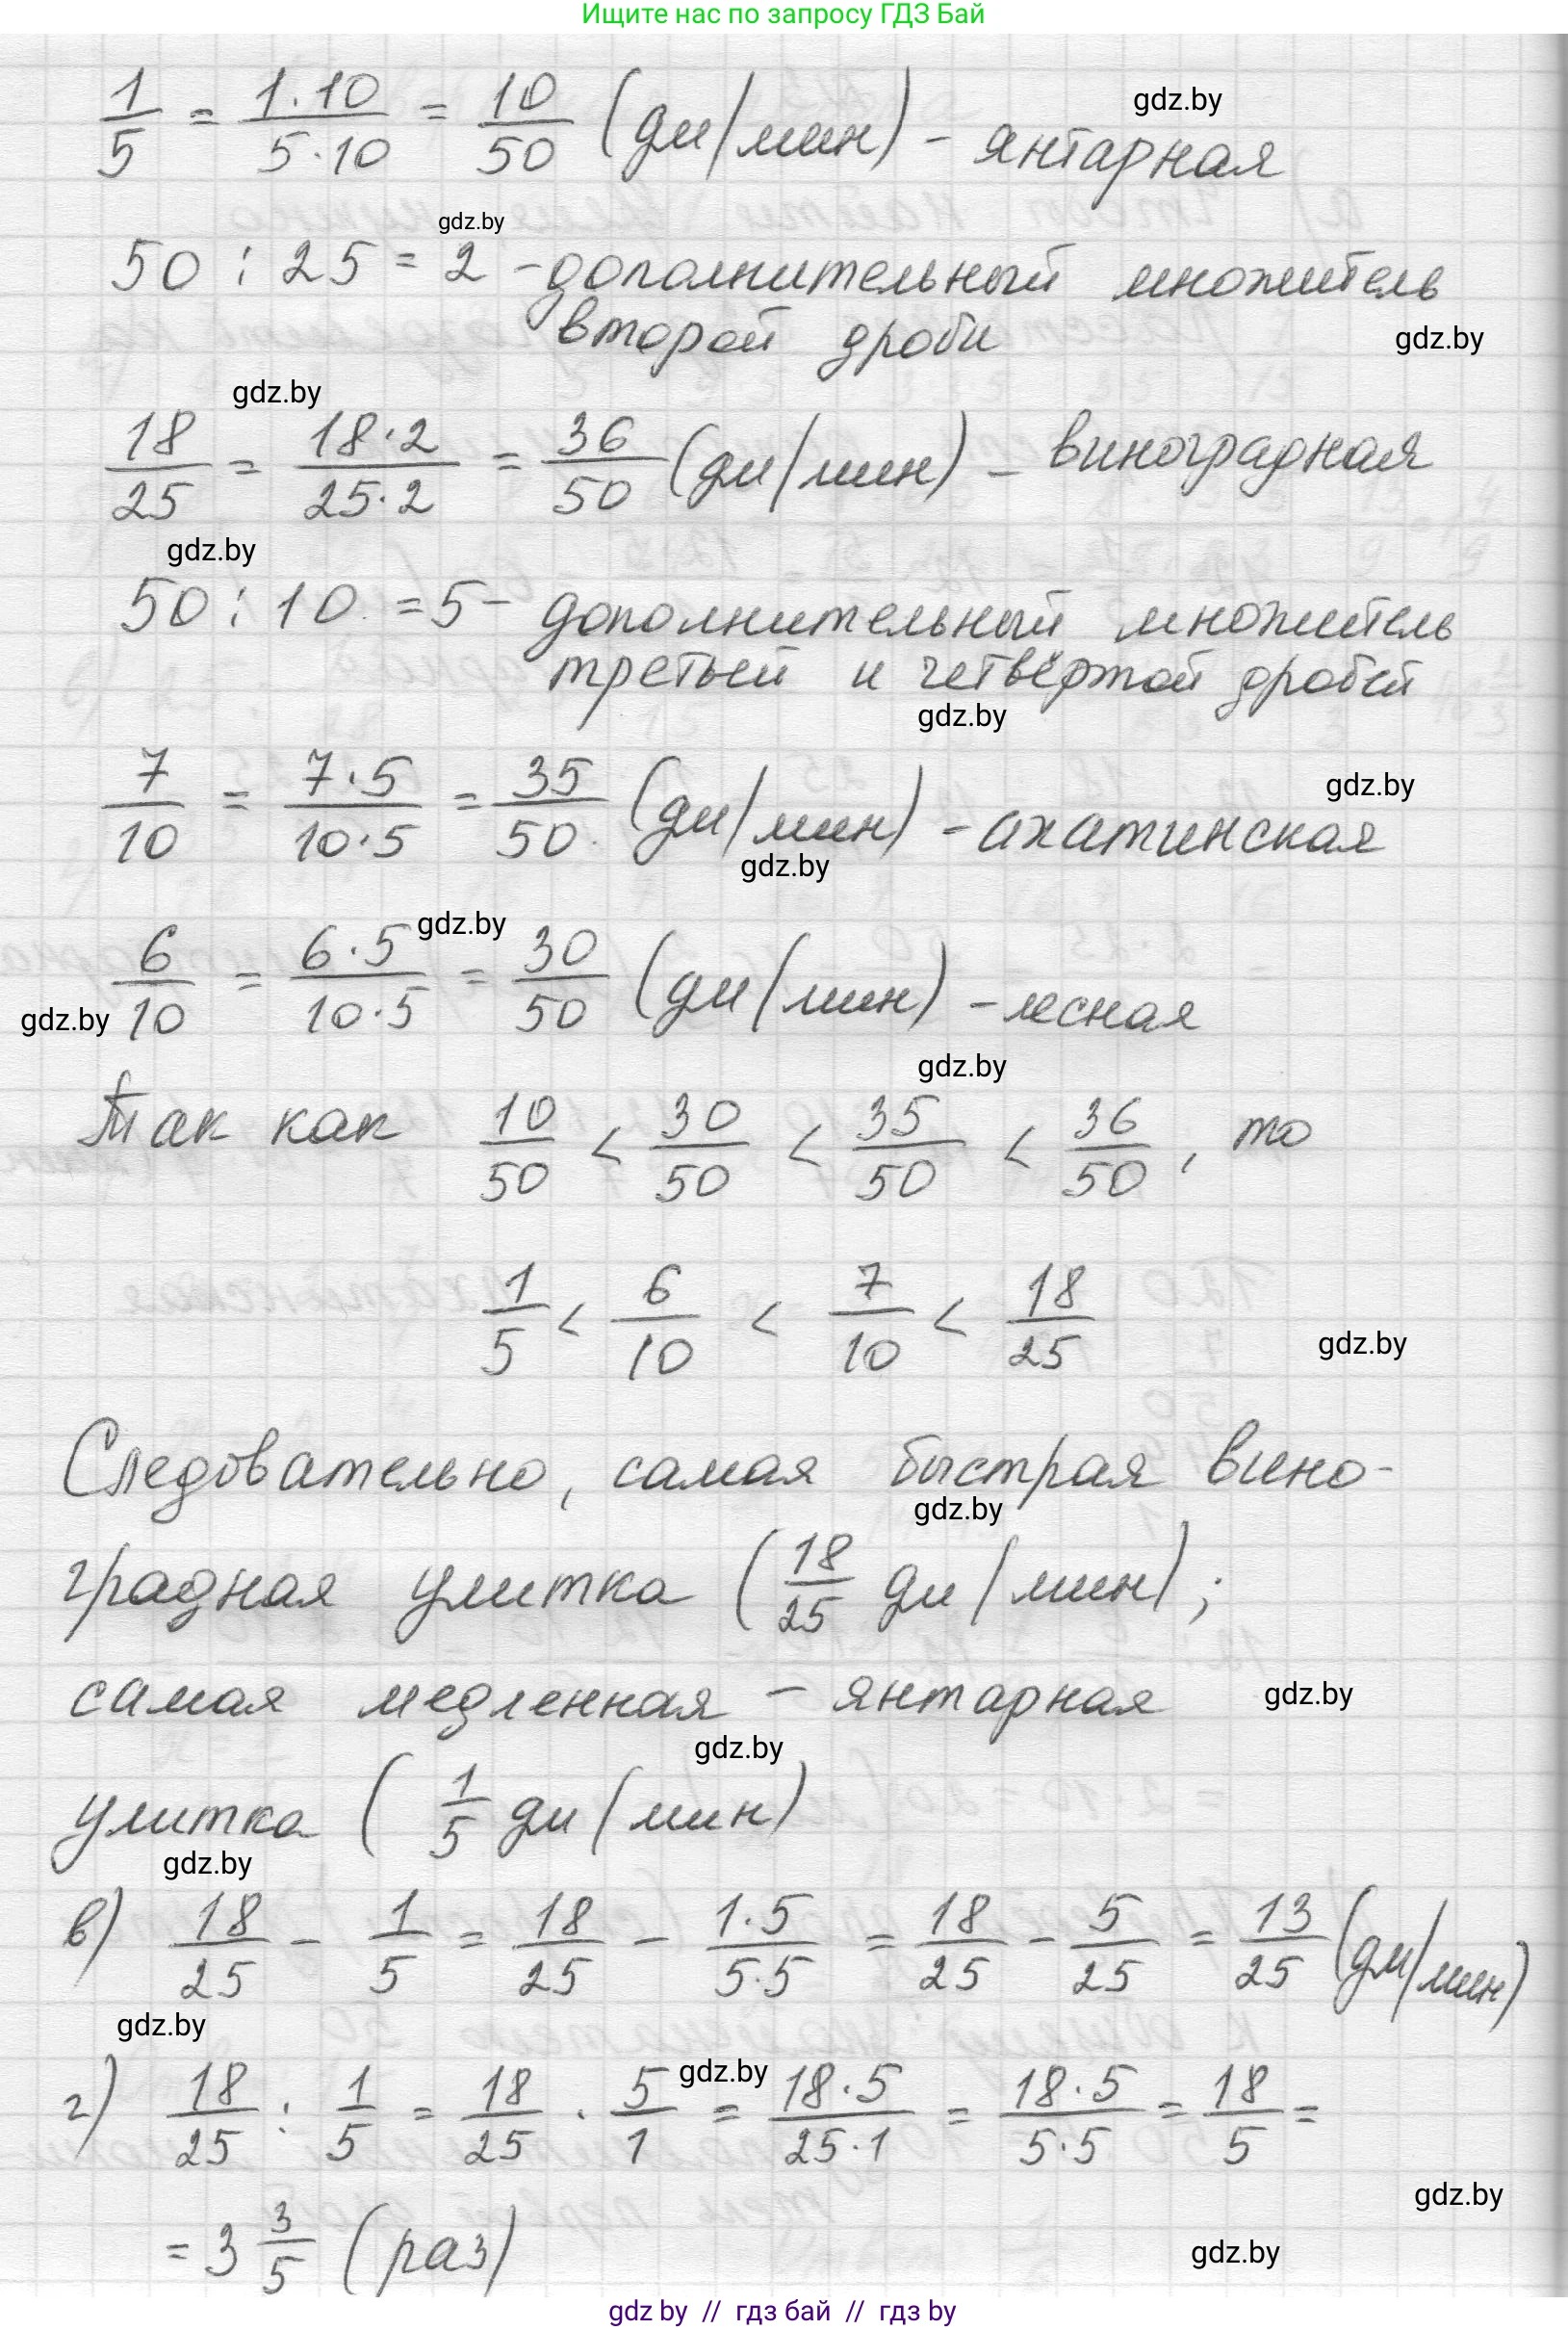 Ищите нас по запросу ГДЗ Бай
1/5 = 1·10/5·10 = 10/50 (дм/мин) - янтарная
gdz.by
gdz.by
50 : 25 = 2 - дополнительный множитель
второй дроби
gdz.by
gdz.by
18/25 = 18·2/25·2 = 36/50 (дм/мин) - виноградная
gdz.by
50 : 10 = 5 - дополнительный множитель
третьей и четвёртой дробей
gdz.by
7/10 = 7·5/10·5 = 35/50 (дм/мин) - ахатинская
gdz.by
gdz.by
gdz.by
6/10 = 6·5/10·5 = 30/50 (дм/мин) - лесная
gdz.by
gdz.by
Так как 10/50 < 30/50 < 35/50 < 36/50, то
1/5 < 6/10 < 7/10 < 18/25
gdz.by
Следовательно, самая быстрая вино-
gdz.by
градная улитка (18/25 дм/мин);
самая медленная - янтарная
gdz.by
gdz.by
улитка (1/5 дм/мин)
gdz.by
в) 18/25 - 1/5 = 18/25 - 1·5/5·5 = 18/25 - 5/25 = 13/25 (дм/мин)
gdz.by
gdz.by
г) 18/25 : 1/5 = 18/25 · 5/1 = 18·5/25·1 = 18·5/5·5 = 18/5 =
gdz.by
= 3 3/5 (раз)
gdz.by
gdz.by // гдз бай // гдз by